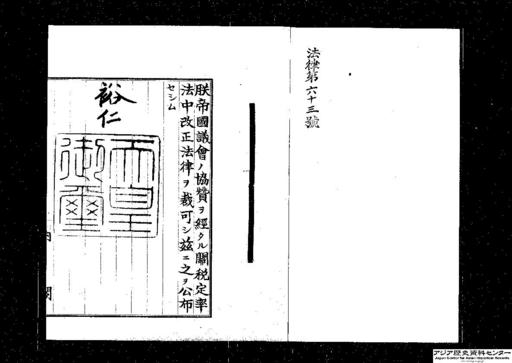 法律第六十三號
朕帝國議會ノ協賛ヲ經タル關税定率
法中改正法律ヲ裁可シ茲ニ之ヲ公布
セシム
裕仁
天皇
御璽
内閣
アジア歴史資料センター
Japan Center for Asian Historical Records